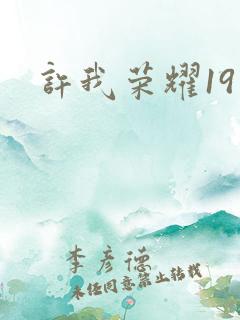 許我荣耀19
李彦德
未经同意禁止转载